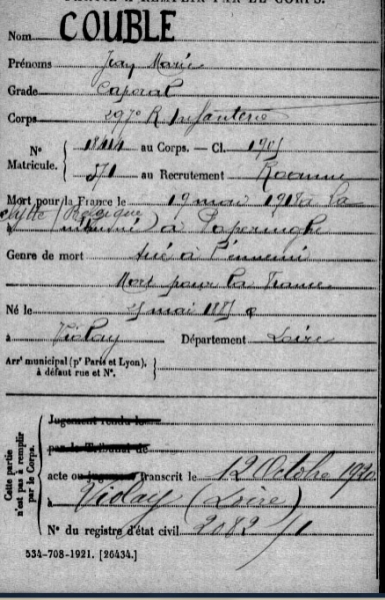 PARTIE À REMPLIR PAR LE CORPS.
Nom COUBLE
Prénoms Jean Marie
Grade Caporal
Corps 297e R Infanterie
N° Matricule. { au Corps. — Cl. 1905
571 au Recrutement Roanne
Mort pour la France le 19 mai 1918 à La
Clytte (Belgique
à inhumé) à Poperinghe
Genre de mort tué à l'ennemi
Mort pour la France
Né le mai 1885
à Violay Département Loire
Arrt municipal (pr Paris et Lyon), à défaut rue et N°. {
Cette partie n'est pas à remplir par le Corps.
Jugement rendu le
par le Tribunal de
acte ou jugement transcrit le 12 Octobre 1920
à Violay (Loire)
N° du registre d'état civil 2082/1
534-708-1921. [26434.]